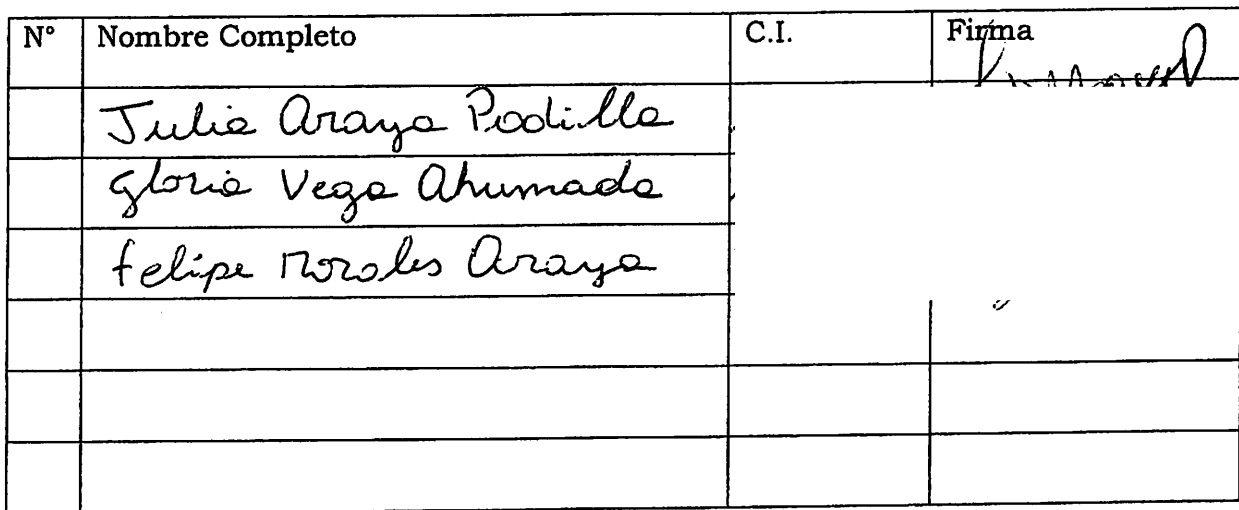 N° Nombre Completo C.I. Firma
Julia Araya Padilla
Gloria Vega Ahumada
Felipe Morales Araya